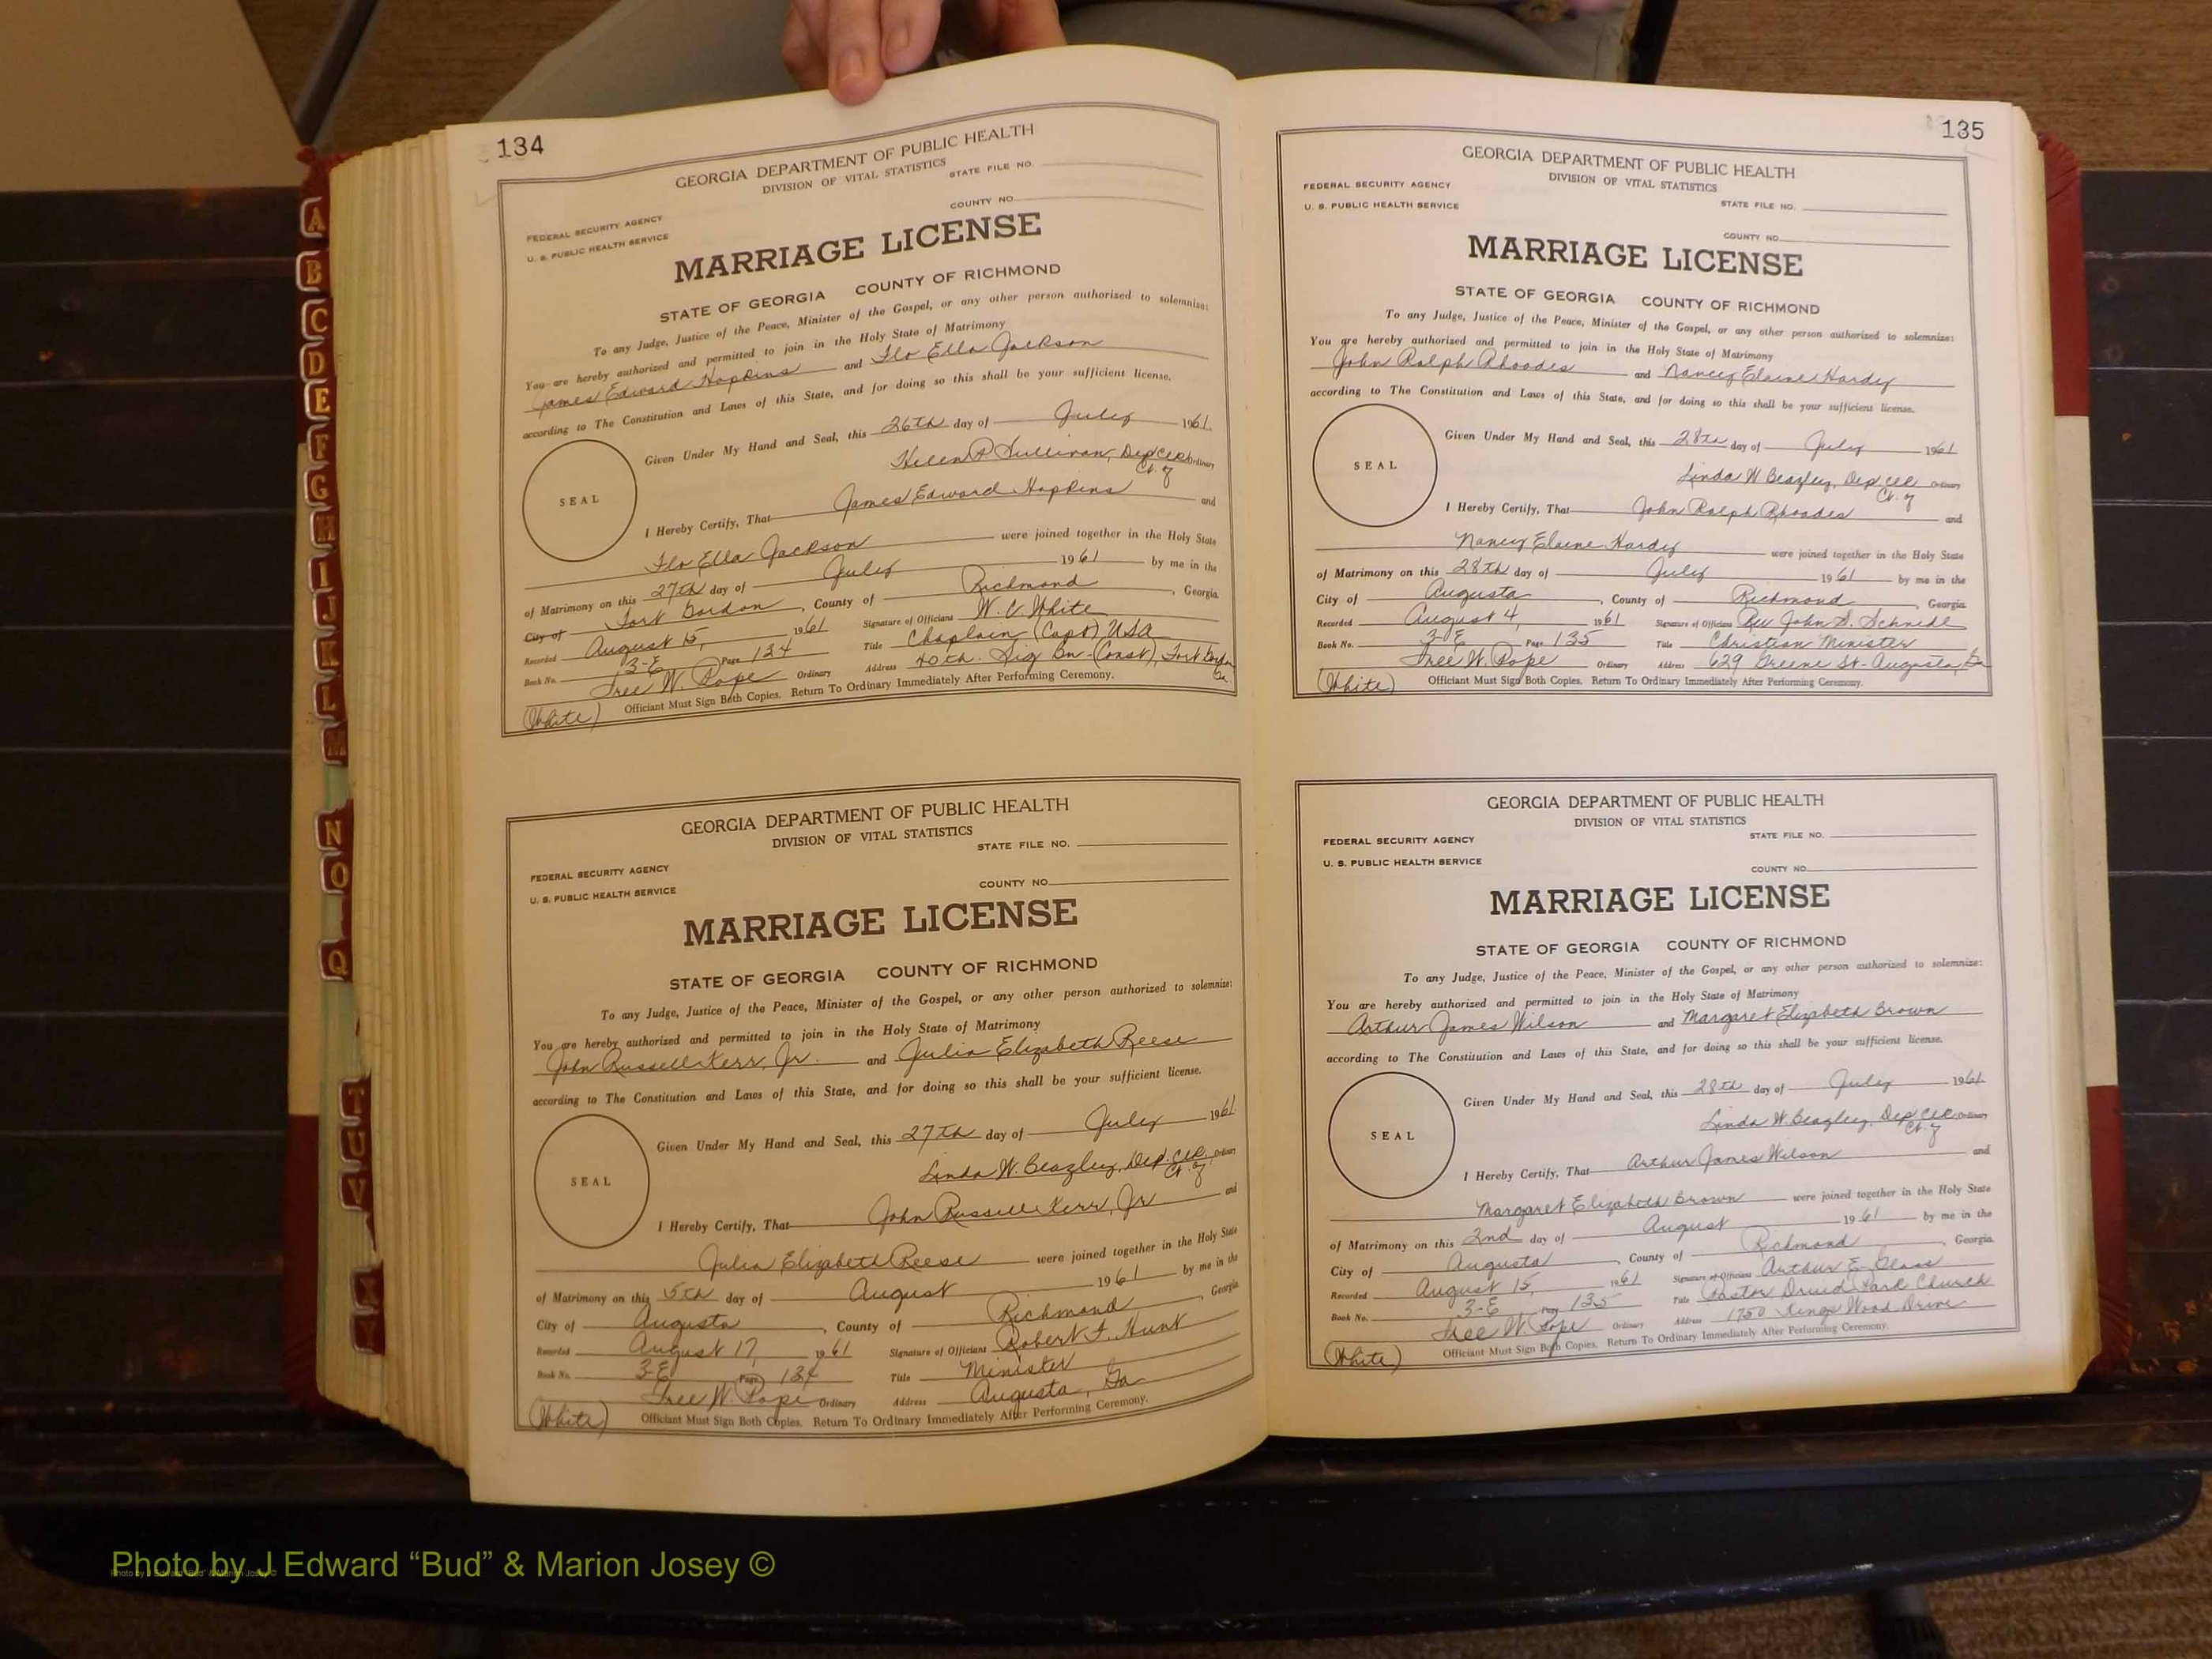 134
GEORGIA DEPARTMENT OF PUBLIC HEALTH
DIVISION OF VITAL STATISTICS
STATE FILE NO.
COUNTY NO.
FEDERAL SECURITY AGENCY
U. S. PUBLIC HEALTH SERVICE
MARRIAGE LICENSE
STATE OF GEORGIA COUNTY OF RICHMOND
To any Judge, Justice of the Peace, Minister of the Gospel, or any other person authorized to solemnize:
You are hereby authorized and permitted to join in the Holy State of Matrimony
James Edward Hopkins and Flo Ella Jackson
according to The Constitution and Laws of this State, and for doing so this shall be your sufficient license.
SEAL
Given Under My Hand and Seal, this 26th day of July 1961.
Helen P. Sullivan, Dep Clk Ordinary
Ct. of
I Hereby Certify, That James Edward Hopkins and
Flo Ella Jackson were joined together in the Holy State
of Matrimony on this 27th day of July 1961 by me in the
City of Fort Gordon, County of Richmond, Georgia.
Recorded August 15, 1961 Signature of Officiant W. V. White
Book No. 3-E Page 134 Title Chaplain (Capt) USA
Free W. Pope Ordinary Address 40th. Sig Bn-(Const), Fort Gordon Ga.
(White) Officiant Must Sign Both Copies. Return To Ordinary Immediately After Performing Ceremony.
GEORGIA DEPARTMENT OF PUBLIC HEALTH
DIVISION OF VITAL STATISTICS
STATE FILE NO.
FEDERAL SECURITY AGENCY
U. S. PUBLIC HEALTH SERVICE
COUNTY NO.
MARRIAGE LICENSE
STATE OF GEORGIA COUNTY OF RICHMOND
To any Judge, Justice of the Peace, Minister of the Gospel, or any other person authorized to solemnize:
You are hereby authorized and permitted to join in the Holy State of Matrimony
John Russell Kerr, Jr. and Julia Elizabeth Reese
according to The Constitution and Laws of this State, and for doing so this shall be your sufficient license.
SEAL
Given Under My Hand and Seal, this 27th day of July 1961.
Linda W. Beazley, Dep. Clk. Ordinary
Ct. of
I Hereby Certify, That John Russell Kerr, Jr and
Julia Elizabeth Reese were joined together in the Holy State
of Matrimony on this 5th day of August 1961 by me in the
City of Augusta, County of Richmond, Georgia
Recorded August 17, 1961 Signature of Officiant Robert F. Hunt
Book No. 3-E Page 134 Title Minister
Free W. Pope Ordinary Address Augusta, Ga
(White) Officiant Must Sign Both Copies. Return To Ordinary Immediately After Performing Ceremony.
135
GEORGIA DEPARTMENT OF PUBLIC HEALTH
DIVISION OF VITAL STATISTICS
FEDERAL SECURITY AGENCY
U. S. PUBLIC HEALTH SERVICE
STATE FILE NO.
COUNTY NO.
MARRIAGE LICENSE
STATE OF GEORGIA COUNTY OF RICHMOND
To any Judge, Justice of the Peace, Minister of the Gospel, or any other person authorized to solemnize:
You are hereby authorized and permitted to join in the Holy State of Matrimony
John Ralph Rhoades and Nancy Elaine Hardy
according to The Constitution and Laws of this State, and for doing so this shall be your sufficient license.
SEAL
Given Under My Hand and Seal, this 28th day of July 1961
Linda W Beazley, Dep Clk Ordinary
Ct. of
I Hereby Certify, That John Ralph Rhoades and
Nancy Elaine Hardy were joined together in the Holy State
of Matrimony on this 28th day of July 1961 by me in the
City of Augusta, County of Richmond, Georgia.
Recorded August 4, 1961 Signature of Officiant Rev John S. Schneidl
Book No. 3-E Page 135 Title Christian Minister
Free W. Pope Ordinary Address 629 Greene St- Augusta, Ga
(White) Officiant Must Sign Both Copies. Return To Ordinary Immediately After Performing Ceremony.
GEORGIA DEPARTMENT OF PUBLIC HEALTH
DIVISION OF VITAL STATISTICS
FEDERAL SECURITY AGENCY
U. S. PUBLIC HEALTH SERVICE
STATE FILE NO.
COUNTY NO.
MARRIAGE LICENSE
STATE OF GEORGIA COUNTY OF RICHMOND
To any Judge, Justice of the Peace, Minister of the Gospel, or any other person authorized to solemnize:
You are hereby authorized and permitted to join in the Holy State of Matrimony
Arthur James Wilson and Margaret Elizabeth Brown
according to The Constitution and Laws of this State, and for doing so this shall be your sufficient license.
SEAL
Given Under My Hand and Seal, this 28th day of July 1961.
Linda W. Beazley, Dep Clk Ordinary
Ct. of
I Hereby Certify, That Arthur James Wilson and
Margaret Elizabeth Brown were joined together in the Holy State
of Matrimony on this 2nd day of August 1961 by me in the
City of Augusta, County of Richmond, Georgia.
Recorded August 15, 1961 Signature of Officiant Arthur E. Glass
Book No. 3-E Page 135 Title Pastor Druid Park Church
Free W. Pope Ordinary Address 1750 Kings Wood Drive
(White) Officiant Must Sign Both Copies. Return To Ordinary Immediately After Performing Ceremony.
A
B
C
D
E
F
G
H
I
J
K
L
M
N
O
Q
T
U
V
X
Y
Photo by J Edward “Bud” & Marion Josey ©
Photo by J Edward "Bud" & Marion Josey ©